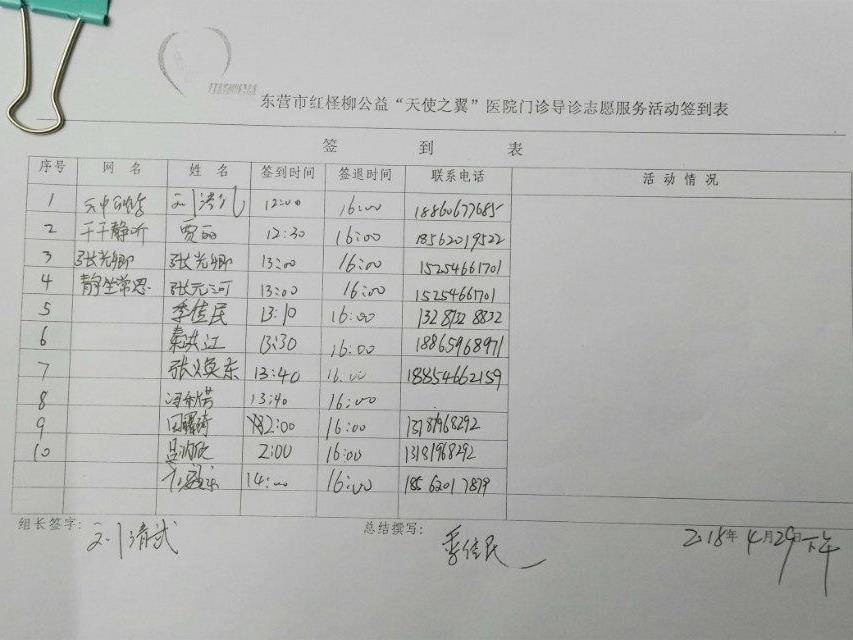 东营市红柽柳公益“天使之翼”医院门诊导诊志愿服务活动签到表
签 到 表
序号 网 名 姓 名 签到时间 签退时间 联系电话 活 动 情 况
1 12:00 16:00 18860677685
2 干干静听 贾丽 12:30 16:00 18562019522
3 张光卿 张光卿 13:00 16:00 15254661701
4 静坐常思 张元河 13:00 16:00 15254661701
5 季佳民 13:10 16:00 132 8732 8832
6 秦洪江 13:30 16:00 18865968971
7 张焕东 13:40 16:00 18854662159
8 13:40 16:00
9 2:00 16:00 13181968292
10 2:00 16:00 13181968292
14:00 16:00 18562017879
组长签字: 总结撰写: 季佳民 2018年4月29日下午